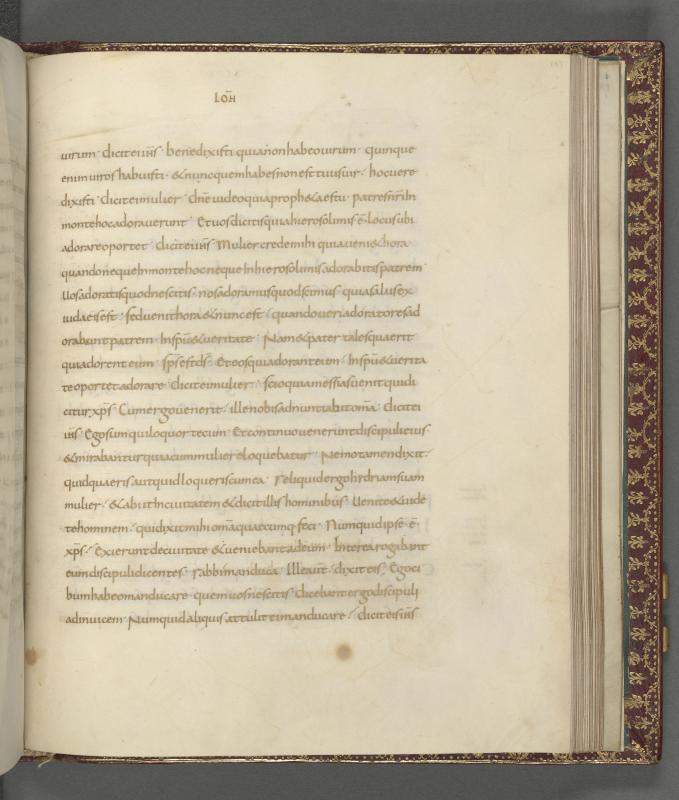 IOH̄
uirum · dicit ei ih̄s · bene dixisti quia non habeo uirum · quinque
enim uiros habuisti · & nunc quem habes non est tuus uir · hoc uere
dixisti · dicit ei mulier · dn̄e uideo quia proph&a es tu · patres nr̄i In
monte hoc adorauerunt · Et uos dicitis quia hierosolimis ē · locus ubi
adorare oportet · dicit ei ih̄s · Mulier crede mihi quia ueni& hora
quando neque In monte hoc neque In hierosolimis adorabitis patrem
Uos adoratis quod nescitis · nos adoramus quod scimus · quia salus ex
iudaeis est · sed uenit hora & nunc est · quando ueri adoratores ad
orabunt patrem · In sp̄u & ueritate · Nam & pater tales quaerit
qui adorent eum · sp̄s est d̄s · Et eos qui adorant eum · In sp̄u & uerita
te oportet adorare · dicit ei mulier · scio quia messias uenit qui di
citur xp̄s · Cum ergo uenerit · ille nobis adnuntiabit om̄a · dicit ei
ih̄s · Ego sum qui loquor tecum · Et continuo uenerunt discipuli eius
& mirabantur quia cum muliere loquebatur · Nemo tamen dixit ·
quid quaeris aut quid loqueris cum ea · reliquid ergo hidriam suam
mulier · & abiit In ciuitatem & dicit illis hominibus · Uenite & uide
te hominem · qui dixit mihi om̄a quaecumq· feci · Numquid ipse ē ·
xp̄s · Exierunt de ciuitate & ueniebant ad eum · Interea rogabant
eum discipuli dicentes · rabbi manduca · Ille aut̄ · dixit eis · Ego ci
bum habeo manducare · quem uos nescitis · dicebant ergo discipuli
ad inuicem · Numquid aliquis attulit ei manducare · dicit eis ih̄s